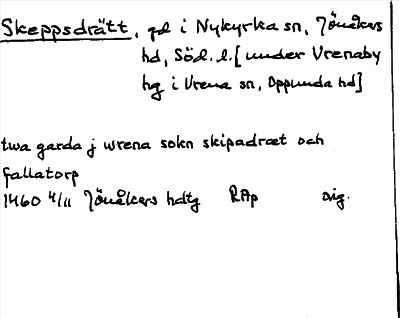 Skeppsdrätt, gd i Nykyrka sn, Jönåkers
hd, Söd. l. [under Vrenaby
hg i Vrena sn, Oppunda hd]
twa garda j wrena sokn skipadræt och
fallatorp
1460 4/11 Jönåkers hdtg RAp orig.